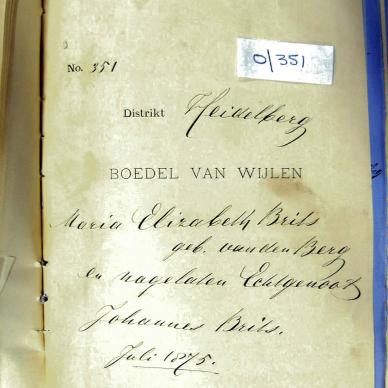 No. 351
O/351
Distrikt Heidelberg
BOEDEL VAN WIJLEN
Maria Elizabeth Brits
geb. van den Berg
en nagelaten Echtgenoot
Johannes Brits.
Juli 1875.